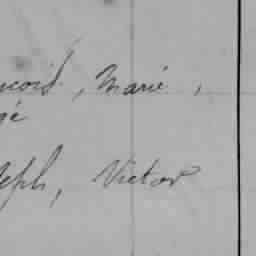 ncois, Marie,
gé
seph, Victor